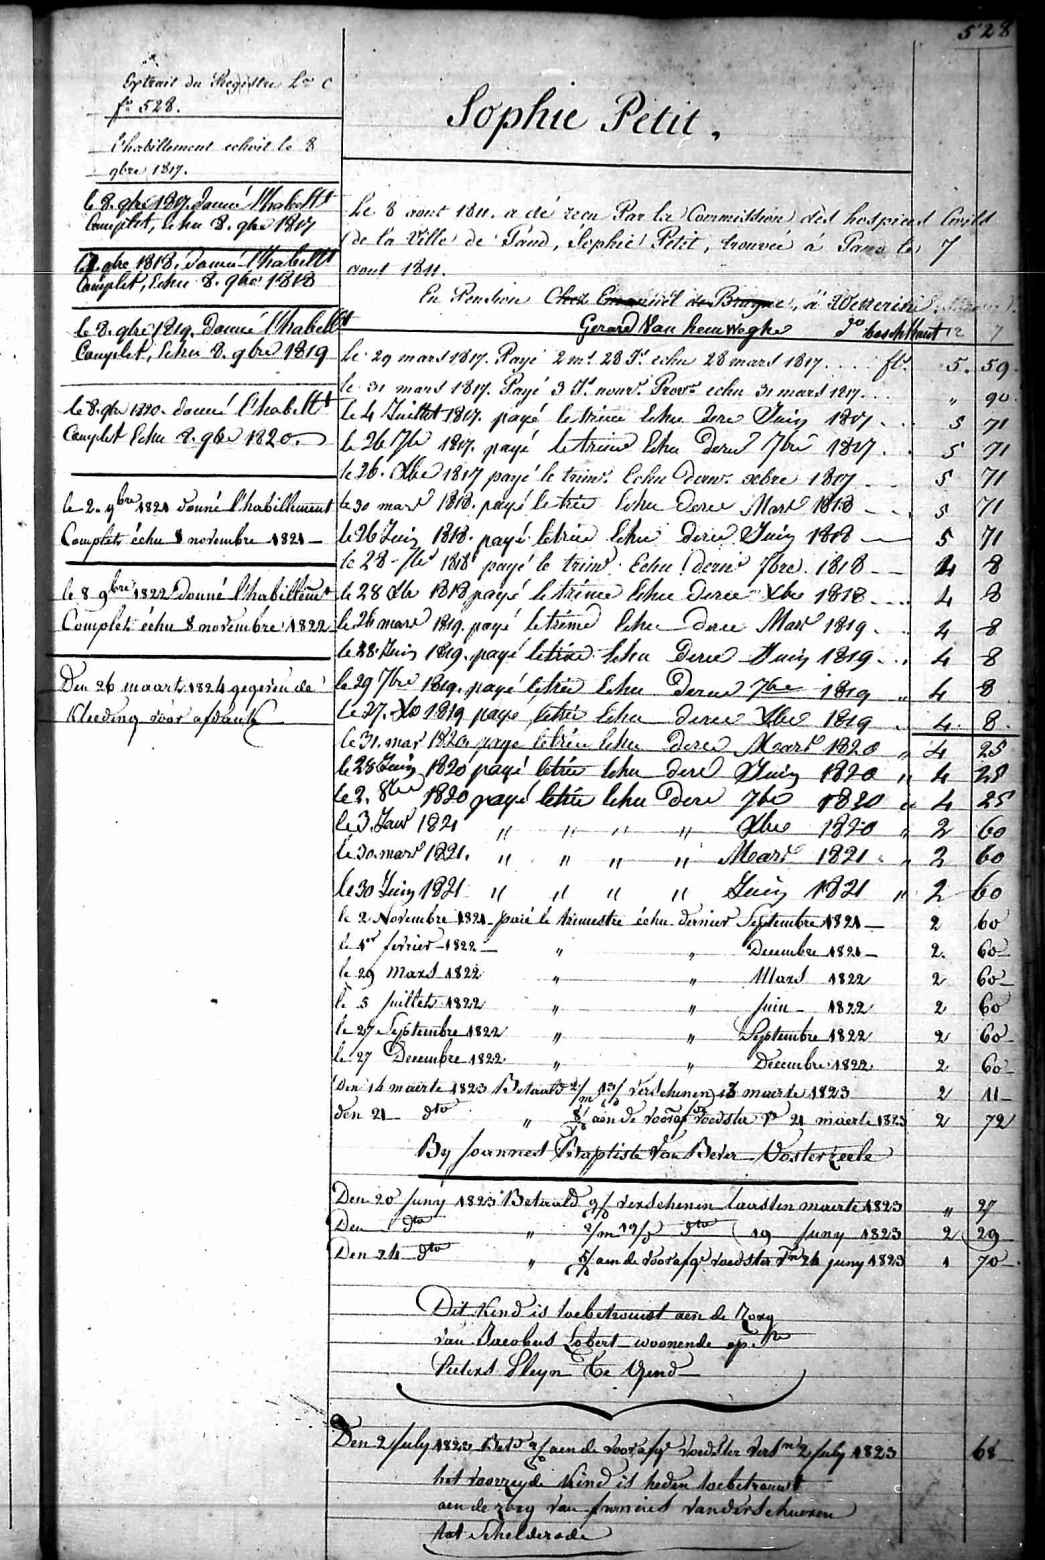 528
Extrait du Registre Lre C
fo 528.
l'habillement echoit le 8
9bre 1817.
le 8. 9bre 1817. donné l'habellt
Complet, Echu 8. 9bre 1817
le 8. 9bre 1818. donné l'habellt
Complet, Echu 8. 9bre 1818
le 8. 9bre 1819. donné l'habellt
Complet, Echu 8. 9bre 1819
le 8. 9bre 1820. donné l'habellt
Complet Echu 8. 9bre 1820.
le 2. 9bre 1821 donné l'habillement
Complet échu 8 novembre 1821 —
le 8 9bre 1822 donné l'habillemt
Complet échu 8 novembre 1822
Den 26 maart 1824 gegeven de
Kleeding voor
Sophie Petit,
Le 8 aout 1811. a été recu Par la Commission des hospices Civils
de la Ville de Gand, Sophie Petit, trouvée à Gand le 7
aout 1811.
En Pension Chez Emanuël de Bruyne, à Wetteren
Gerard Van heuweghe do 12 7
Le 29 mars 1817. Payé 2 ms. 28 Js. echu 28 mars 1817 . . . . fls. 5. 59.
le 31 mars 1817. Payé 3 Js. nour. Provs. echu 31 mars 1817. . . " 90.
le 4 Juillet 1817. payé le trime Echu dere Juin 1817 . . . 5 71
le 26 7bre 1817. payé le trime Echu dere 7bre 1817 . . 5 71
le 26. Xbre 1817 payé le trimr. Echu dernr. xbre 1817 . . 5 71
le 30 mars 1818. payé le trie Echu dere Mars 1818 — . . 5 71
le 26 Juin 1818. payé le trie Echu dere Juin 1818 — 5 71
le 28 7bre 1818 payé le trimr. Echu dernr 7bre 1818 — 4 8
le 28 Xbre 1818 payé le trime Echu dere Xbre 1818 . . . 4 8
le 26 mars 1819. payé le trime Echu dere Mars 1819. . 4 8
le 28 Juin 1819. payé le trie Echu Dere Juin 1819 . . . 4 8
le 29 7bre 1819. payé le trie Echu Derne 7bre 1819 " 4 8
Le 27. Xbre 1819 payé le trie Echu dere Xbre 1819 . 4. 8.
le 31. mars 1820 payé le trie Echu Dere Mars 1820 " 4 25
le 28 Juin 1820 payé le trie Echu dere Juin 1820 " 4 25
le 2. 8bre 1820 payé le trie Echu Dere 7bre 1820 " 4 25
le 3. Janr 1821 " " " " Xbre 1820 " 2 60
le 30. mars 1821. " " " " Mars 1821 . " 2 60
le 30 Juin 1821 " " " " Juin 1821 " 2 60
le 2 Novembre 1821 paié le trimestre échu dernier Septembre 1821 — 2 60
le 1er février 1822 — " " Decembre 1821 — 2. 60 —
le 29 Mars 1822 " " Mars 1822 2 60 —
le 5 Juillet 1822 " " Juin — 1822 2 60
le 27 Septembre 1822 " " Septembre 1822 2 60 —
le 27 Decembre 1822 " " Decembre 1822 2 60 —
Den 14 maerte 1823 Betaald 2/m 13/ verschenen 13 maerte 1823 2 11 —
den 21 — dto " 8/ aen de vooraf. voedster 21 maerte 1823 2 72
By Joannes Baptiste Van Bever Oosterzeele
Den 20 Juny 1823 Betaald 9/ verschenen laasten maerte 1823 " 27
Den dto " 2/m 19/ dto 19 Juny 1823 2 29
Den 24 — dto " 5/ aen de voorafge voedster 24 juny 1823 1 70
Dit kind is toebetrouwt aen de Zorg
van Jacobus Lobert woonende op St
Pieters Pleyn te Gend —
Den 2 July 1823 Betd 2/ aen de voorafge voedster versn 2 July 1823 68
het voorzeyde kind is heden toebetrouwt
aen de zorg van francies vanderschueren
tot Schelderode